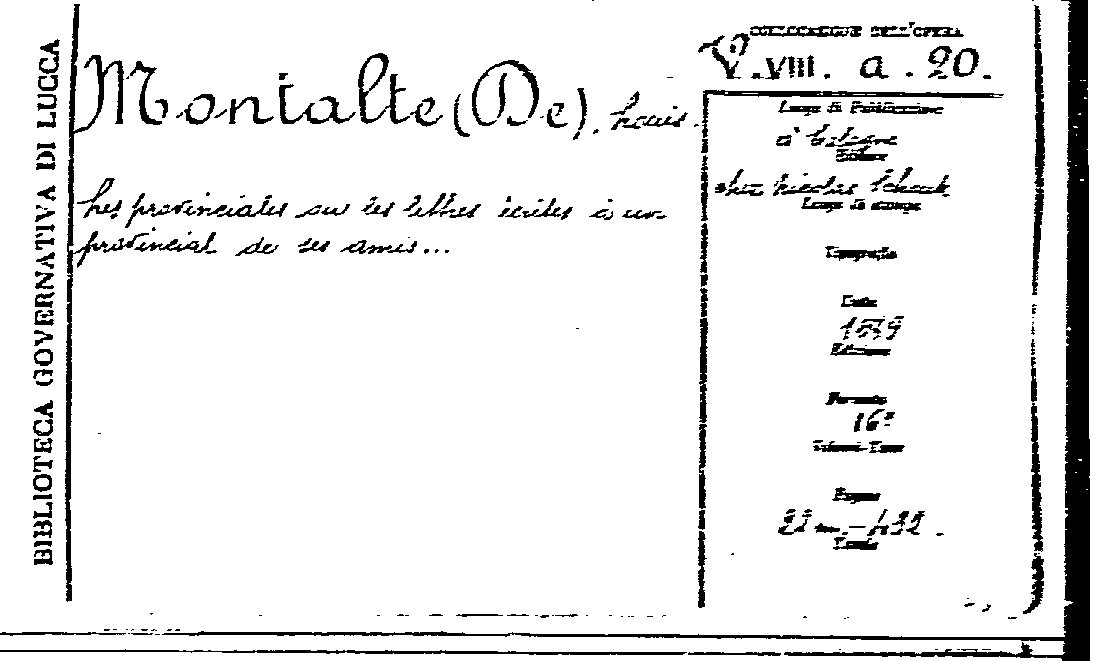 BIBLIOTECA GOVERNATIVA DI LUCCA
Montalte (De), Louis.
Les provinciales ou les lettres écrites à un
provincial de ses amis...
COLLOCAZIONE DELL'OPERA
V. VIII. a. 20.
Luogo di Pubblicazione
à Cologne
Editore
chez Nicolas Schouk
Luogo di stampa
Tipografia
Data
Edizione
Formato
16º
Volumi-Tomi
Pagine
22 n. - 432.
Tavole